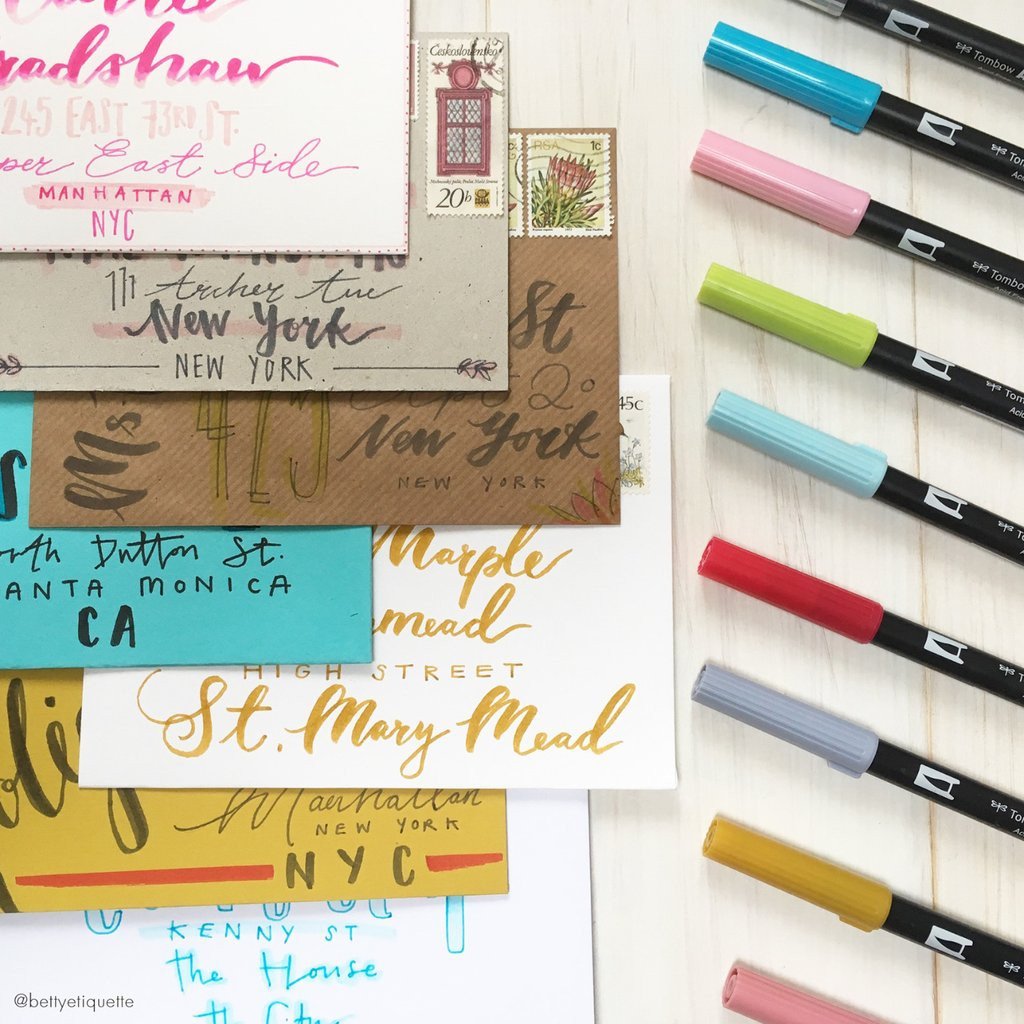 radshaw
245 EAST 73RD ST.
per East Side
MANHATTAN
NYC
Československo
20b
RSA 1c
111 Archer Ave
New York
NEW YORK
St
Ms.
Apt 2.
New York
NEW YORK
45c
orth Dutton St.
ANTA MONICA
CA
Marple
mead
HIGH STREET
St. Mary Mead
Manhattan
NEW YORK
NYC
KENNY ST
the House
the City
@bettyetiquette
Tombow
Tombow
Tombow